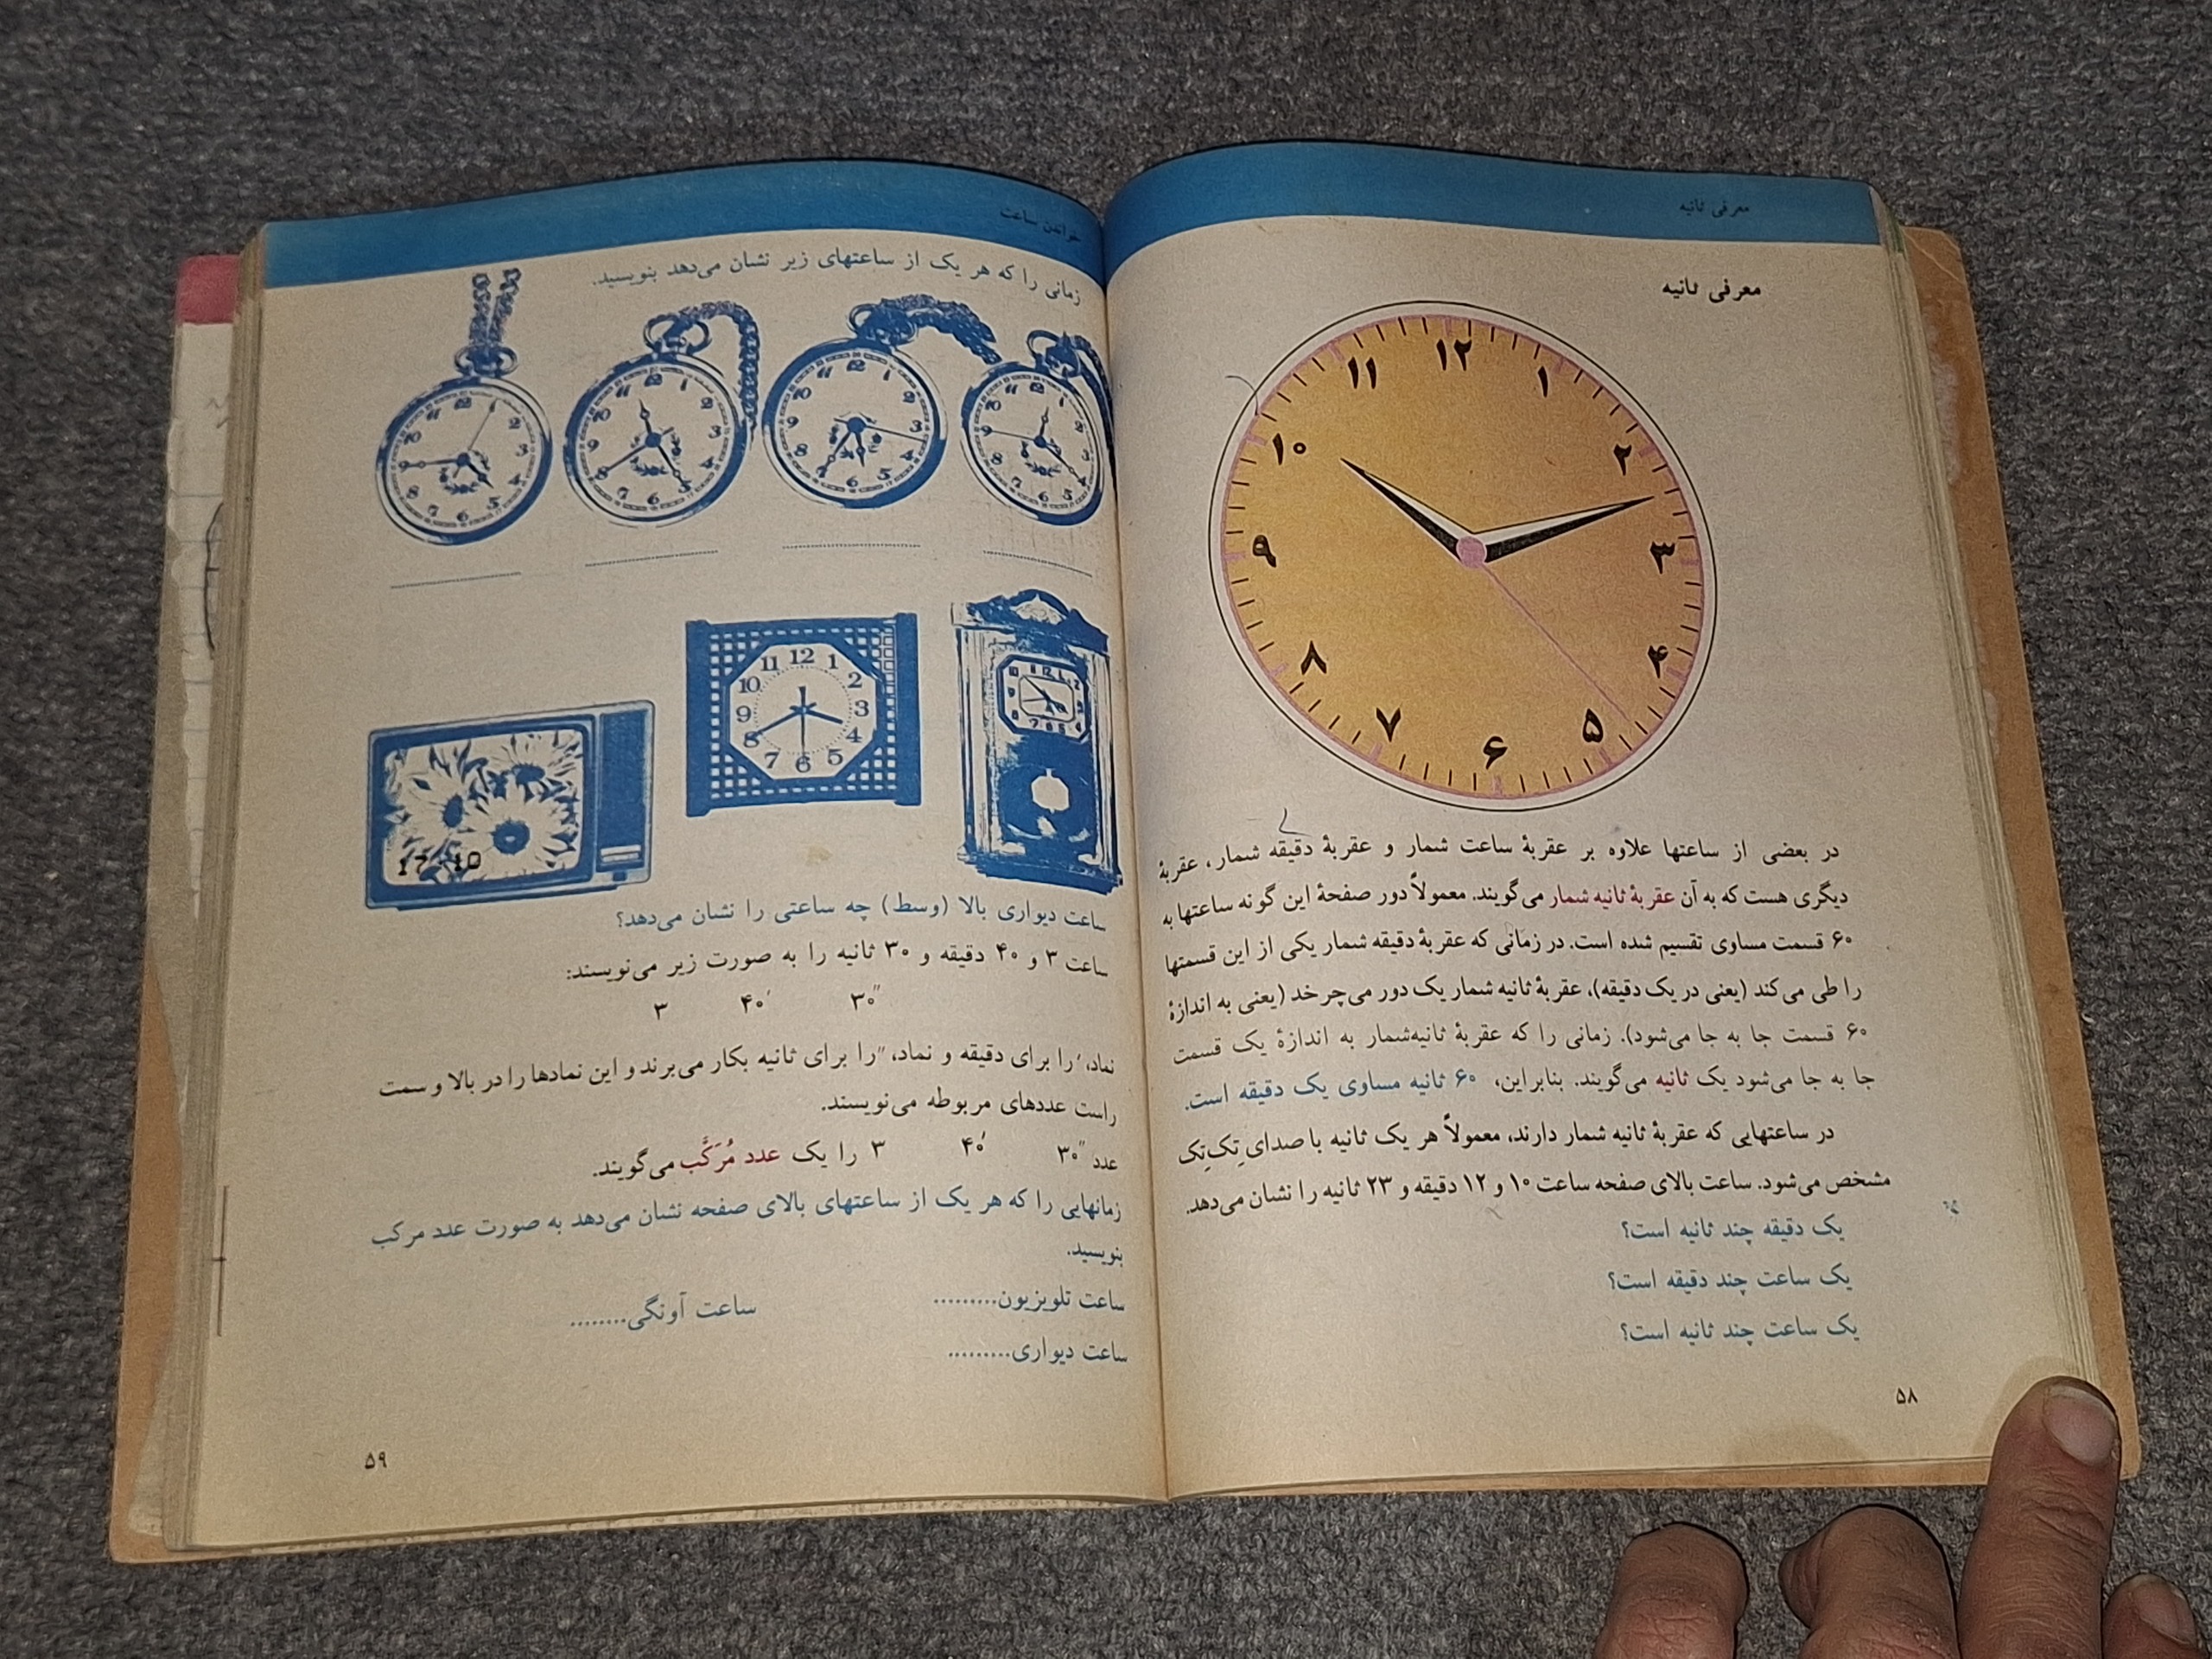 معرفی ثانیه
معرفی ثانیه
۱۲
۱
۲
۳
۴
۵
۶
۷
۸
۹
۱۰
۱۱
در بعضی از ساعتها علاوه بر عقربهٔ ساعت شمار و عقربهٔ دقیقه شمار، عقربهٔ
دیگری هست که به آن عقربهٔ ثانیه شمار می‌گویند. معمولاً دور صفحهٔ این گونه ساعتها به
۶۰ قسمت مساوی تقسیم شده است. در زمانی که عقربهٔ دقیقه شمار یکی از این قسمتها
را طی می‌کند (یعنی در یک دقیقه)، عقربهٔ ثانیه شمار یک دور می‌چرخد (یعنی به اندازهٔ
۶۰ قسمت جا به جا می‌شود). زمانی را که عقربهٔ ثانیه‌شمار به اندازهٔ یک قسمت
جا به جا می‌شود یک ثانیه می‌گویند. بنابراین، ۶۰ ثانیه مساوی یک دقیقه است.
در ساعتهایی که عقربهٔ ثانیه شمار دارند، معمولاً هر یک ثانیه با صدای تِک‌تِک
مشخص می‌شود. ساعت بالای صفحه ساعت ۱۰ و ۱۲ دقیقه و ۲۳ ثانیه را نشان می‌دهد.
یک دقیقه چند ثانیه است؟
یک ساعت چند دقیقه است؟
یک ساعت چند ثانیه است؟
۵۸
خواندن ساعت
زمانی را که هر یک از ساعتهای زیر نشان می‌دهد بنویسید.
12
1
2
3
4
5
6
7
8
9
10
11
17 10
ساعت دیواری بالا (وسط) چه ساعتی را نشان می‌دهد؟
ساعت ۳ و ۴۰ دقیقه و ۳۰ ثانیه را به صورت زیر می‌نویسند:
۳ ۴۰′ ۳۰″
نماد، ′ را برای دقیقه و نماد، ″ را برای ثانیه بکار می‌برند و این نمادها را در بالا و سمت
راست عددهای مربوطه می‌نویسند.
عدد ۳۰″ ۴۰′ ۳ را یک عدد مُرَکَّب می‌گویند.
زمانهایی را که هر یک از ساعتهای بالای صفحه نشان می‌دهد به صورت عدد مرکب
بنویسید.
ساعت تلویزیون......... ساعت آونگی........
ساعت دیواری.........
۵۹